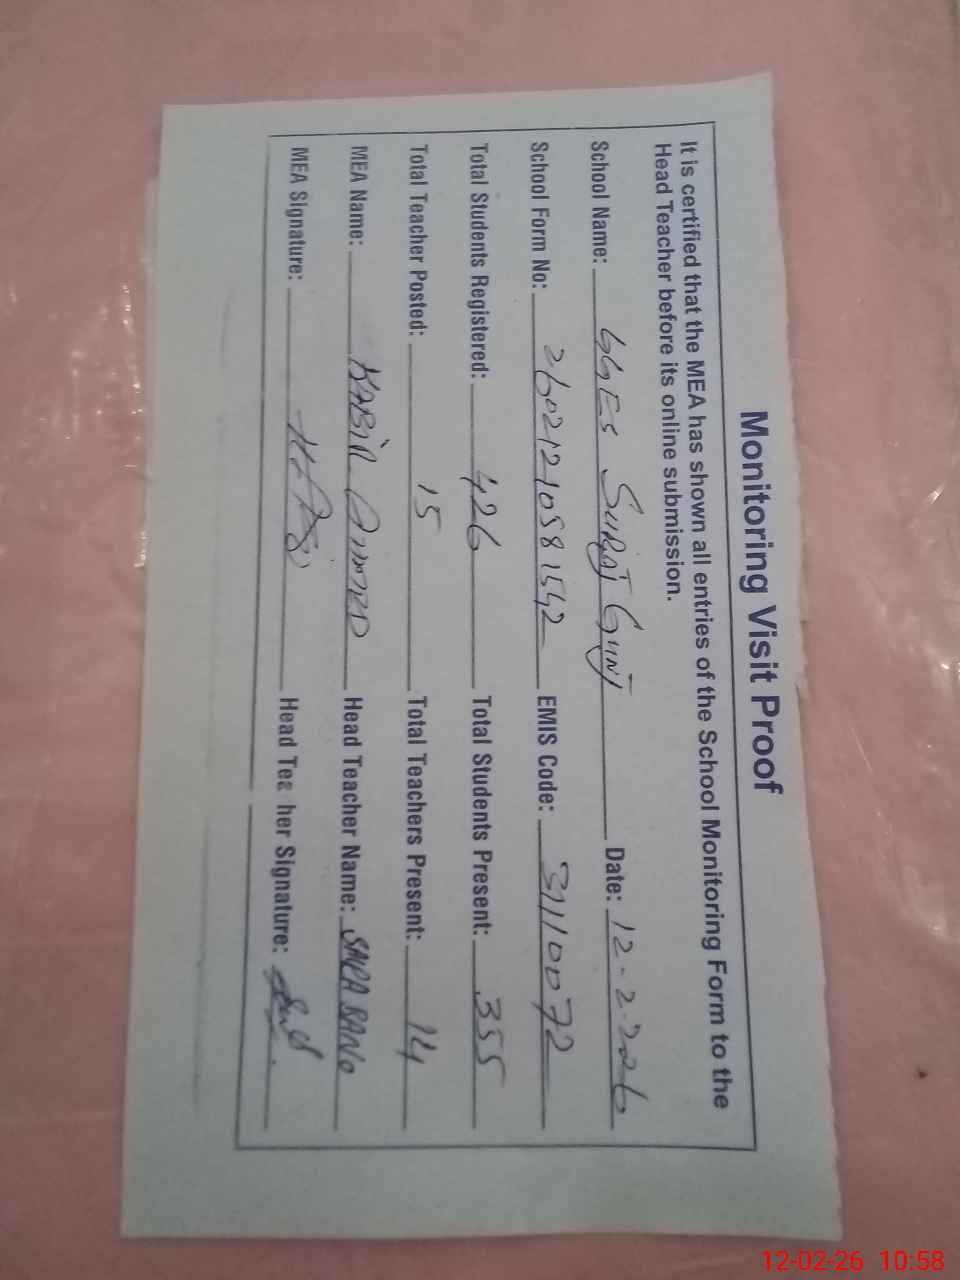 Monitoring Visit Proof
It is certified that the MEA has shown all entries of the School Monitoring Form to the
Head Teacher before its online submission.
School Name: GGES Suraj Gunj Date: 12-2-2026
School Form No: 2602121058 1542 EMIS Code: 31110072
Total Students Registered: 426 Total Students Present: 355
Total Teacher Posted: 15 Total Teachers Present: 14
MEA Name: KABIR AHMED Head Teacher Name: SAIRA BANO
MEA Signature: Head Teacher Signature:
12-02-26 10:58